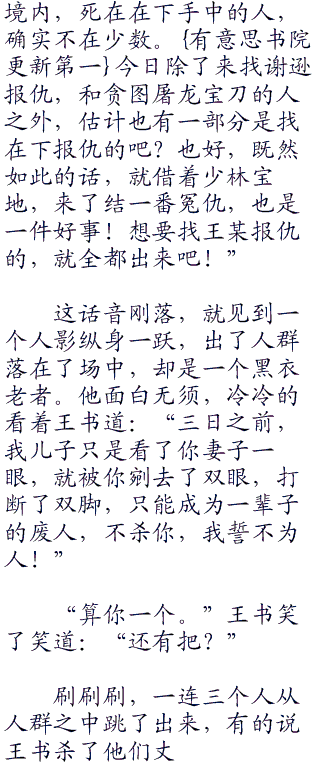 境内，死在在下手中的人，
确实不在少数。{有意思书院
更新第一}今日除了来找谢逊
报仇，和贪图屠龙宝刀的人
之外，估计也有一部分是找
在下报仇的吧？也好，既然
如此的话，就借着少林宝
地，来了结一番冤仇，也是
一件好事！想要找王某报仇
的，就全都出来吧！”
这话音刚落，就见到一
个人影纵身一跃，出了人群
落在了场中，却是一个黑衣
老者。他面白无须，冷冷的
看着王书道：“三日之前，
我儿子只是看了你妻子一
眼，就被你剜去了双眼，打
断了双脚，只能成为一辈子
的废人，不杀你，我誓不为
人！”
“算你一个。”王书笑
了笑道：“还有把？”
刷刷刷，一连三个人从
人群之中跳了出来，有的说
王书杀了他们丈